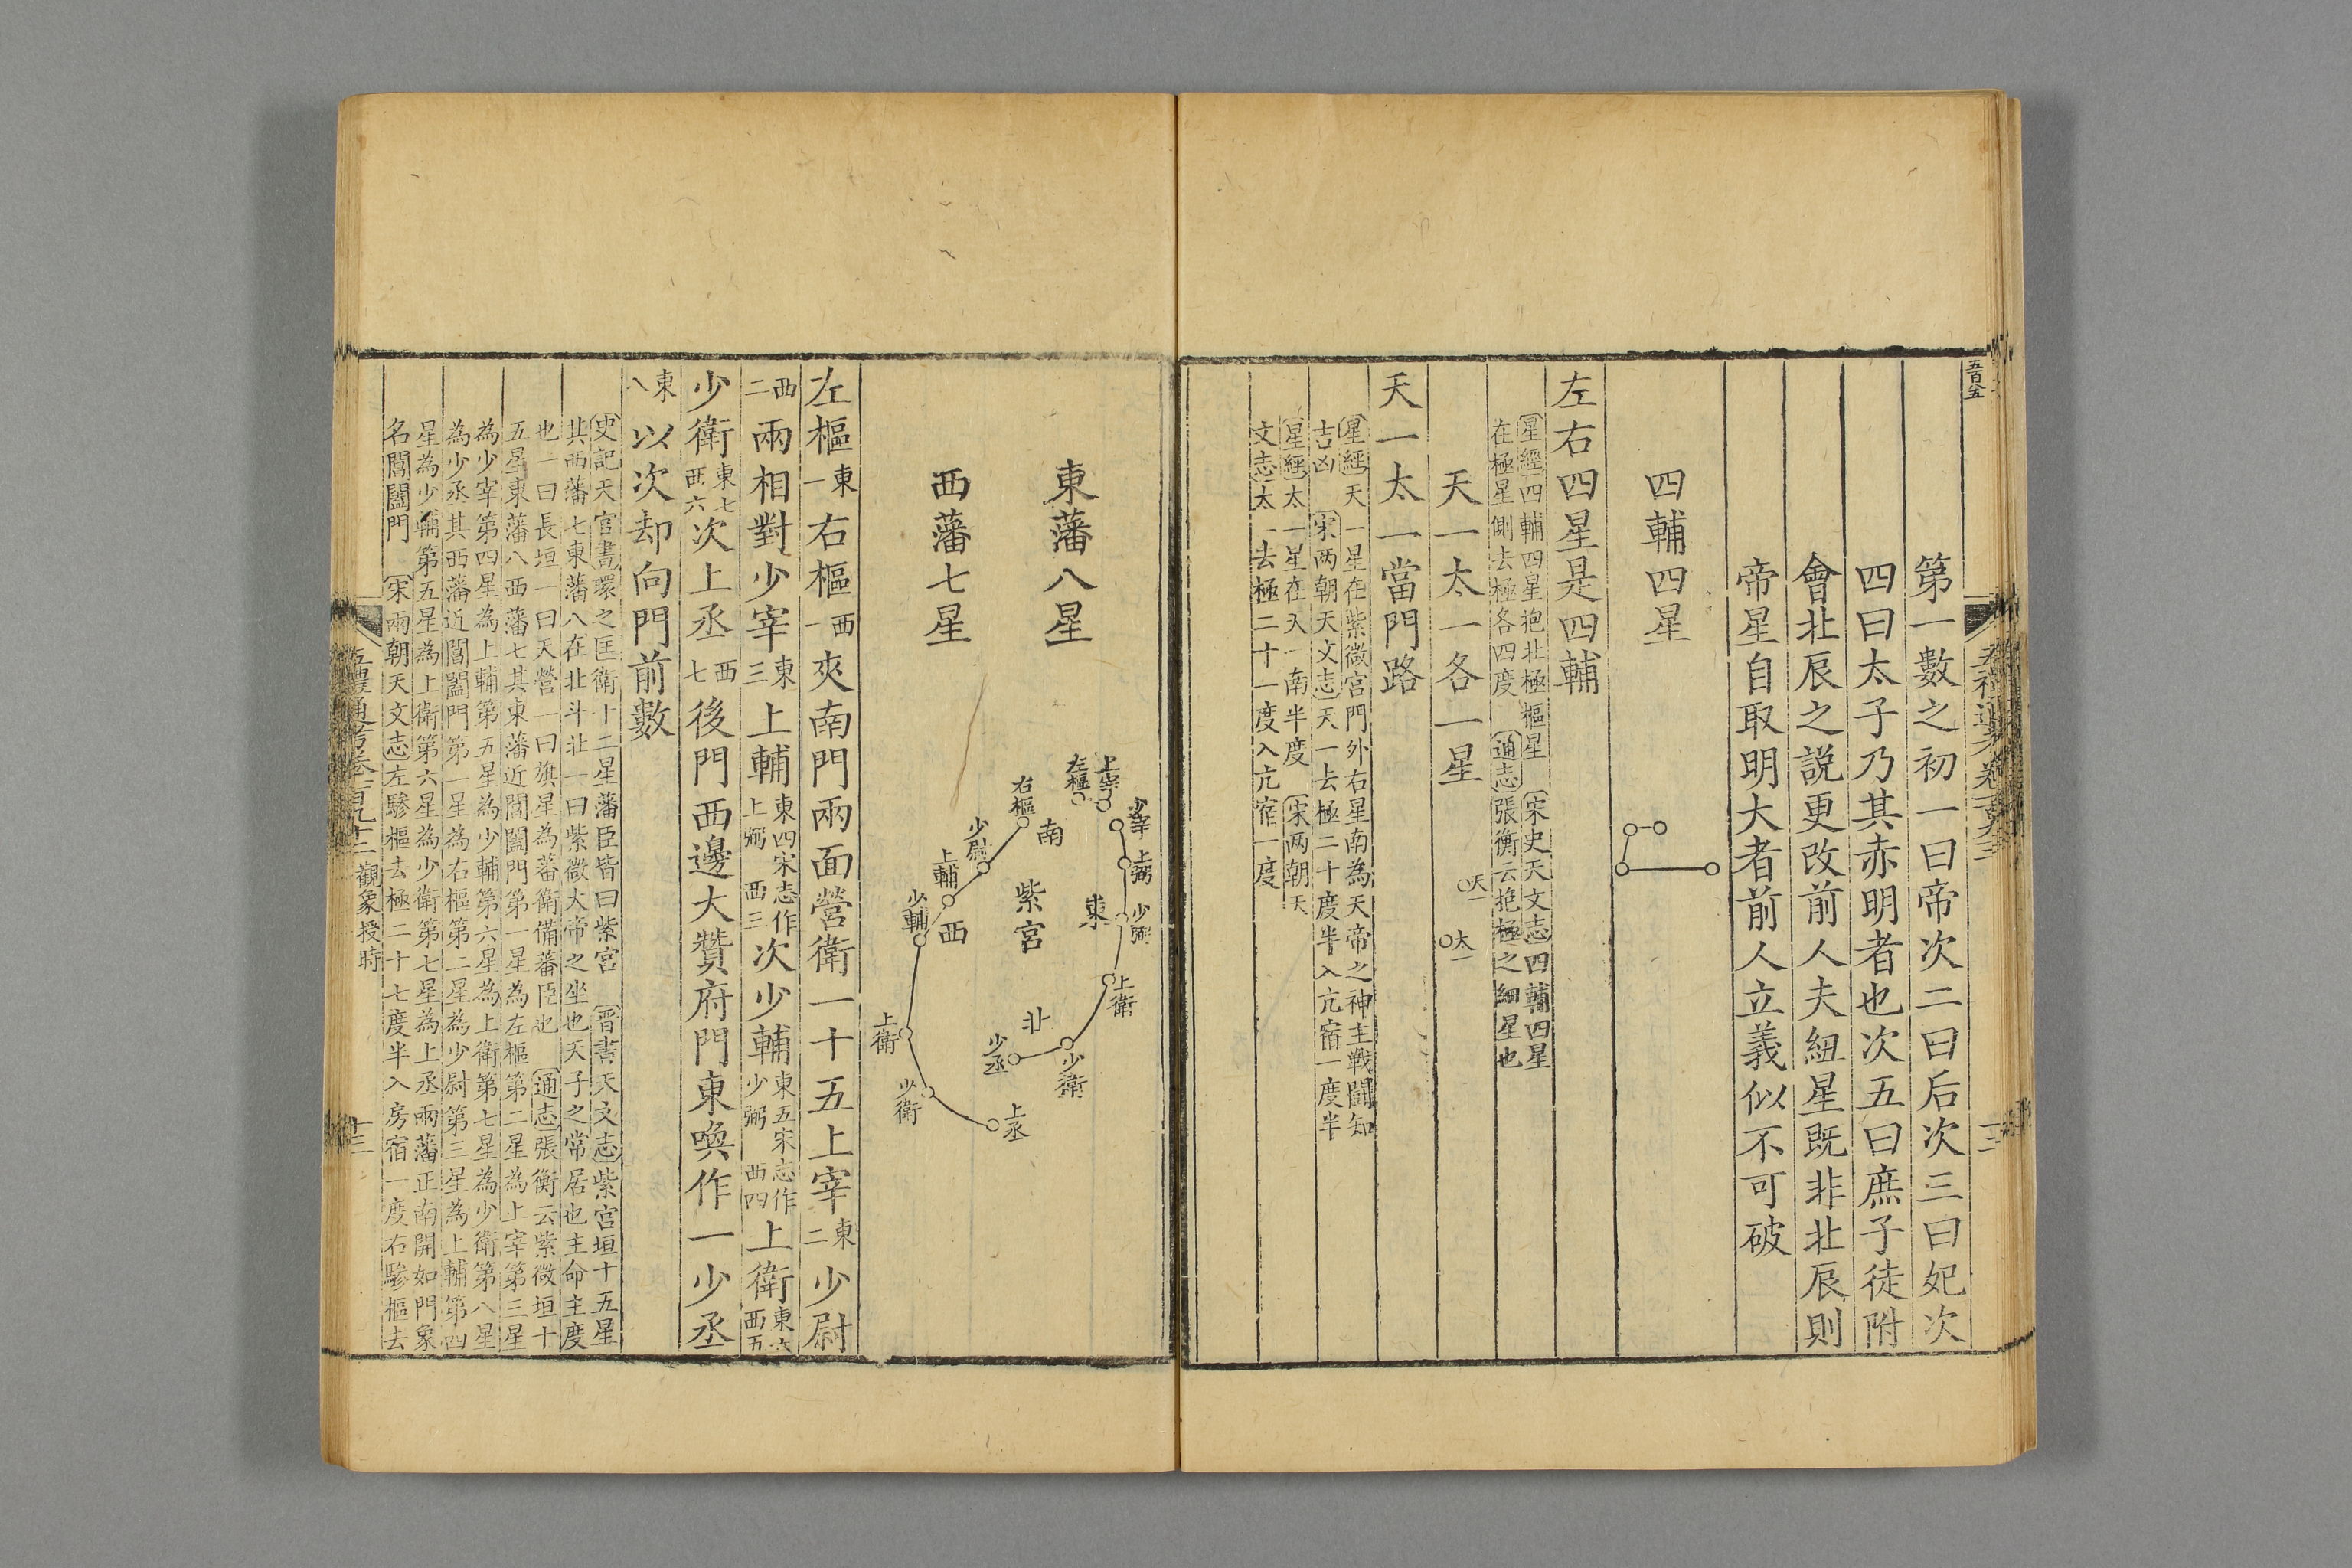 五百八五
五禮通考卷一百九十二
十二
第一數之初一曰帝次二曰后次三曰妃次
四曰太子乃其赤明者也次五曰庶子徒附
會北辰之說更改前人夫紐星既非北辰則
帝星自取明大者前人立義似不可破
四輔四星
左右四星是四輔
星經四輔四星抱北極樞星 宋史天文志四輔四星
在極星側去極各四度 通志張衡云抱極之細星也
天一太一各一星
天一
太一
天一太一當門路
星經天一星在紫微宮門外右星南為天帝之神主戰鬬知
吉凶 宋兩朝天文志天一去極二十度半入亢宿一度半
星經太一星在天一南半度 宋兩朝天
文志太一去極二十一度入亢宿一度
東藩八星
西藩七星
上宰
左樞
少宰
上弼
少弼
上衛
少衛
少丞
右樞
少尉
上輔
少輔
上衛
少衛
上丞
南
東
紫宮
西
北
左樞東一右樞西一夾南門兩面營衛一十五上宰東二少尉
西二兩相對少宰東三上輔東四宋志作上弼 西三次少輔東五宋志作少弼 西四上衛東六西五
少衛東七西六次上丞西七後門西邊大贊府門東喚作一少丞
東八以次却向門前數
史記天官書環之匡衛十二星藩臣皆曰紫宮 晉書天文志紫宮垣十五星
其西藩七東藩八在北斗北一曰紫微大帝之坐也天子之常居也主命主度
也一曰長垣一曰天營一曰旗星為蕃衛備蕃臣也 通志張衡云紫微垣十
五星東藩八西藩七其東藩近閶闔門第一星為左樞第二星為上宰第三星
為少宰第四星為上輔第五星為少輔第六星為上衛第七星為少衛第八星
為少丞其西藩近閶闔門第一星為右樞第二星為少尉第三星為上輔第四
星為少輔第五星為上衛第六星為少衛第七星為上丞兩藩正南開如門象
名閶闔門 宋兩朝天文志左驂樞去極二十七度半入房宿一度右驂樞去
五禮通考卷一百九十二 觀象授時
十二